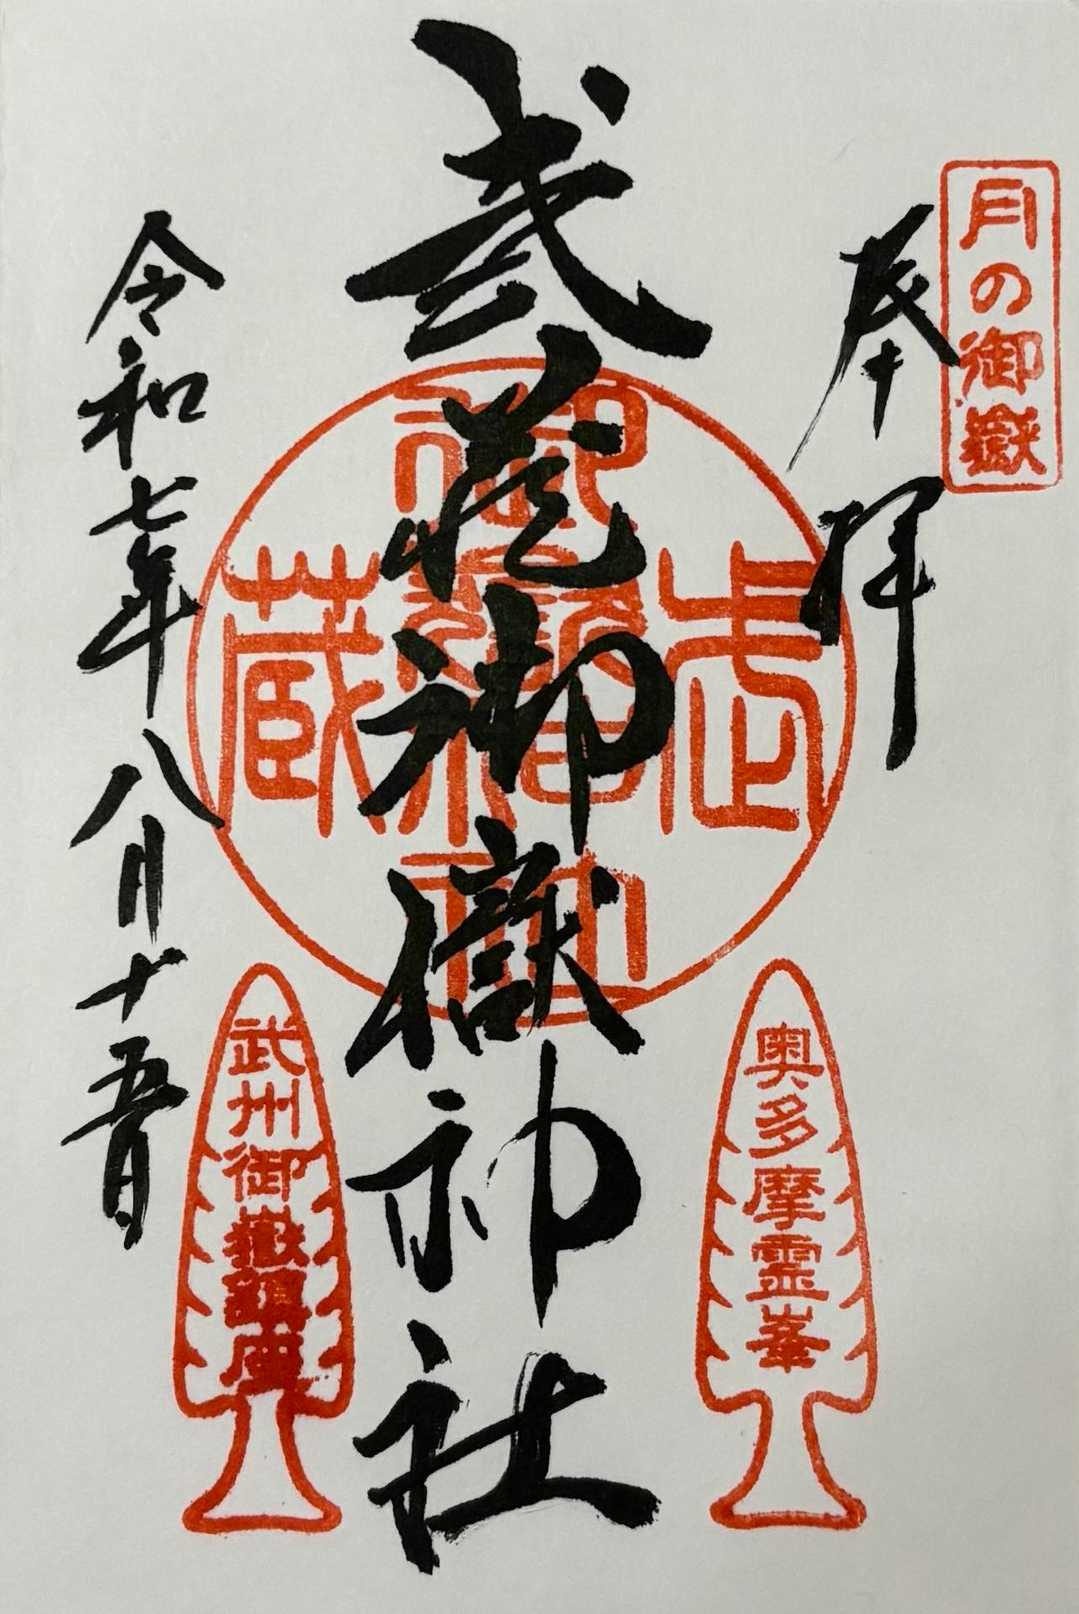 月の御嶽
奉拝
武蔵御嶽神社
武蔵御嶽神社
奥多摩霊峯
武州御嶽鎮座
令和七年八月十五日